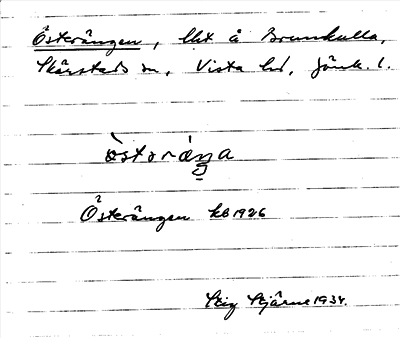 Österängen, lht å Brunnkulla,
Skärstads sn, Vista hd, Jönk. l.
òstoráŋa
Österängen kb 1926
Stig Stjärne 1934.